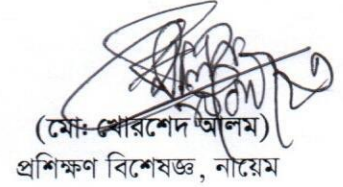 (মোঃ খোরশেদ আলম)
প্রশিক্ষণ বিশেষজ্ঞ, নায়েম